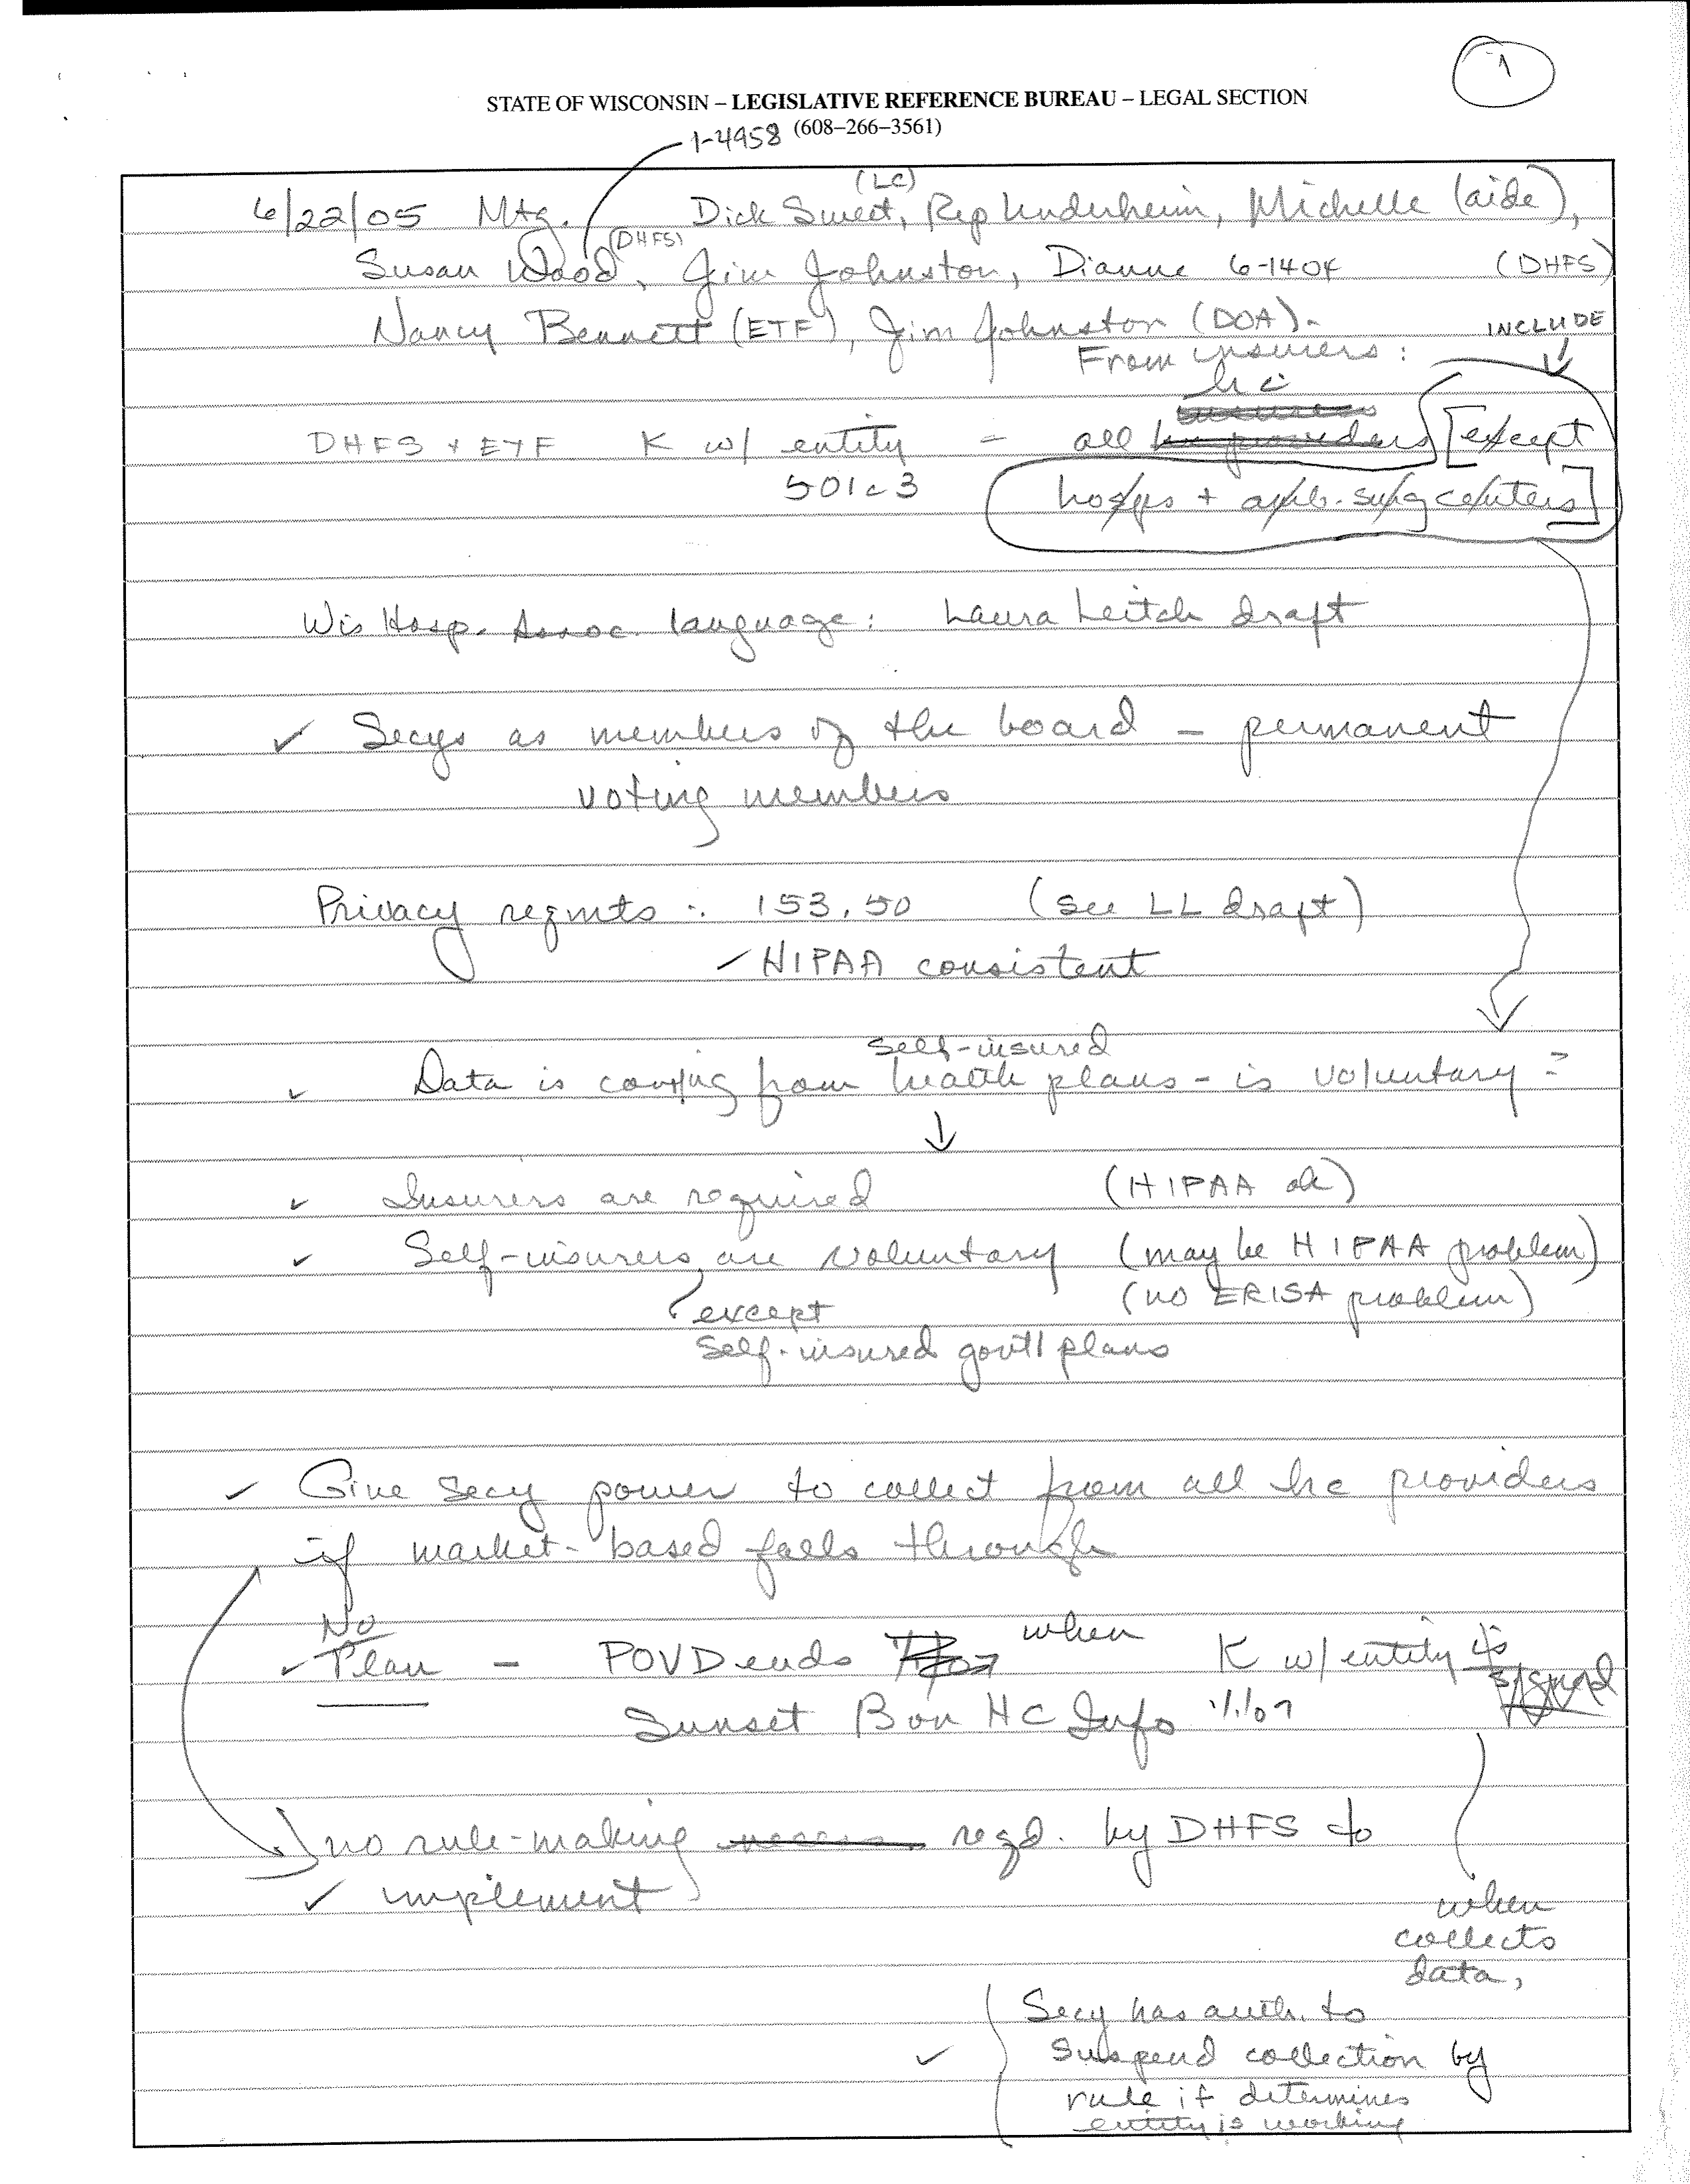 1
STATE OF WISCONSIN – LEGISLATIVE REFERENCE BUREAU – LEGAL SECTION
(608–266–3561)
1-4958
(LC)
6/22/05 Mtg. Dick Sweet, Rep Underheim, Michelle (aide),
(DHFS)
Susan Wood, Jim Johnston, Dianne 6-1404 (DHFS)
Nancy Bennett (ETF), Jim Johnston (DOA).
INCLUDE
From insurers:
hc
DHFS + ETF K w/ entity = all hc providers [except
501c3 hosps + amb. surg centers]
Wis Hosp. Assoc. language: Laura Leitch draft
✓ Secys as members of the board – permanent
voting members
Privacy reqmts: 153.50 (see LL draft)
✓ HIPAA consistent
self-insured
✓ Data is coming from health plans - is voluntary?
↓
✓ Insurers are required (HIPAA ok)
✓ Self-insurers are voluntary (may be HIPAA problem)
except (no ERISA problem)
self-insured gov'tl plans
✓ Give Secy power to collect from all hc providers
if market-based falls through
No
✓ Plan – POVD ends when K w/ entity is
signed
Sunset B on HC Info 1/1/07
no rule-making reqd. by DHFS to
✓ implement
when
collects
data,
Secy has auth. to
✓ suspend collection by
rule if determines
entity is working